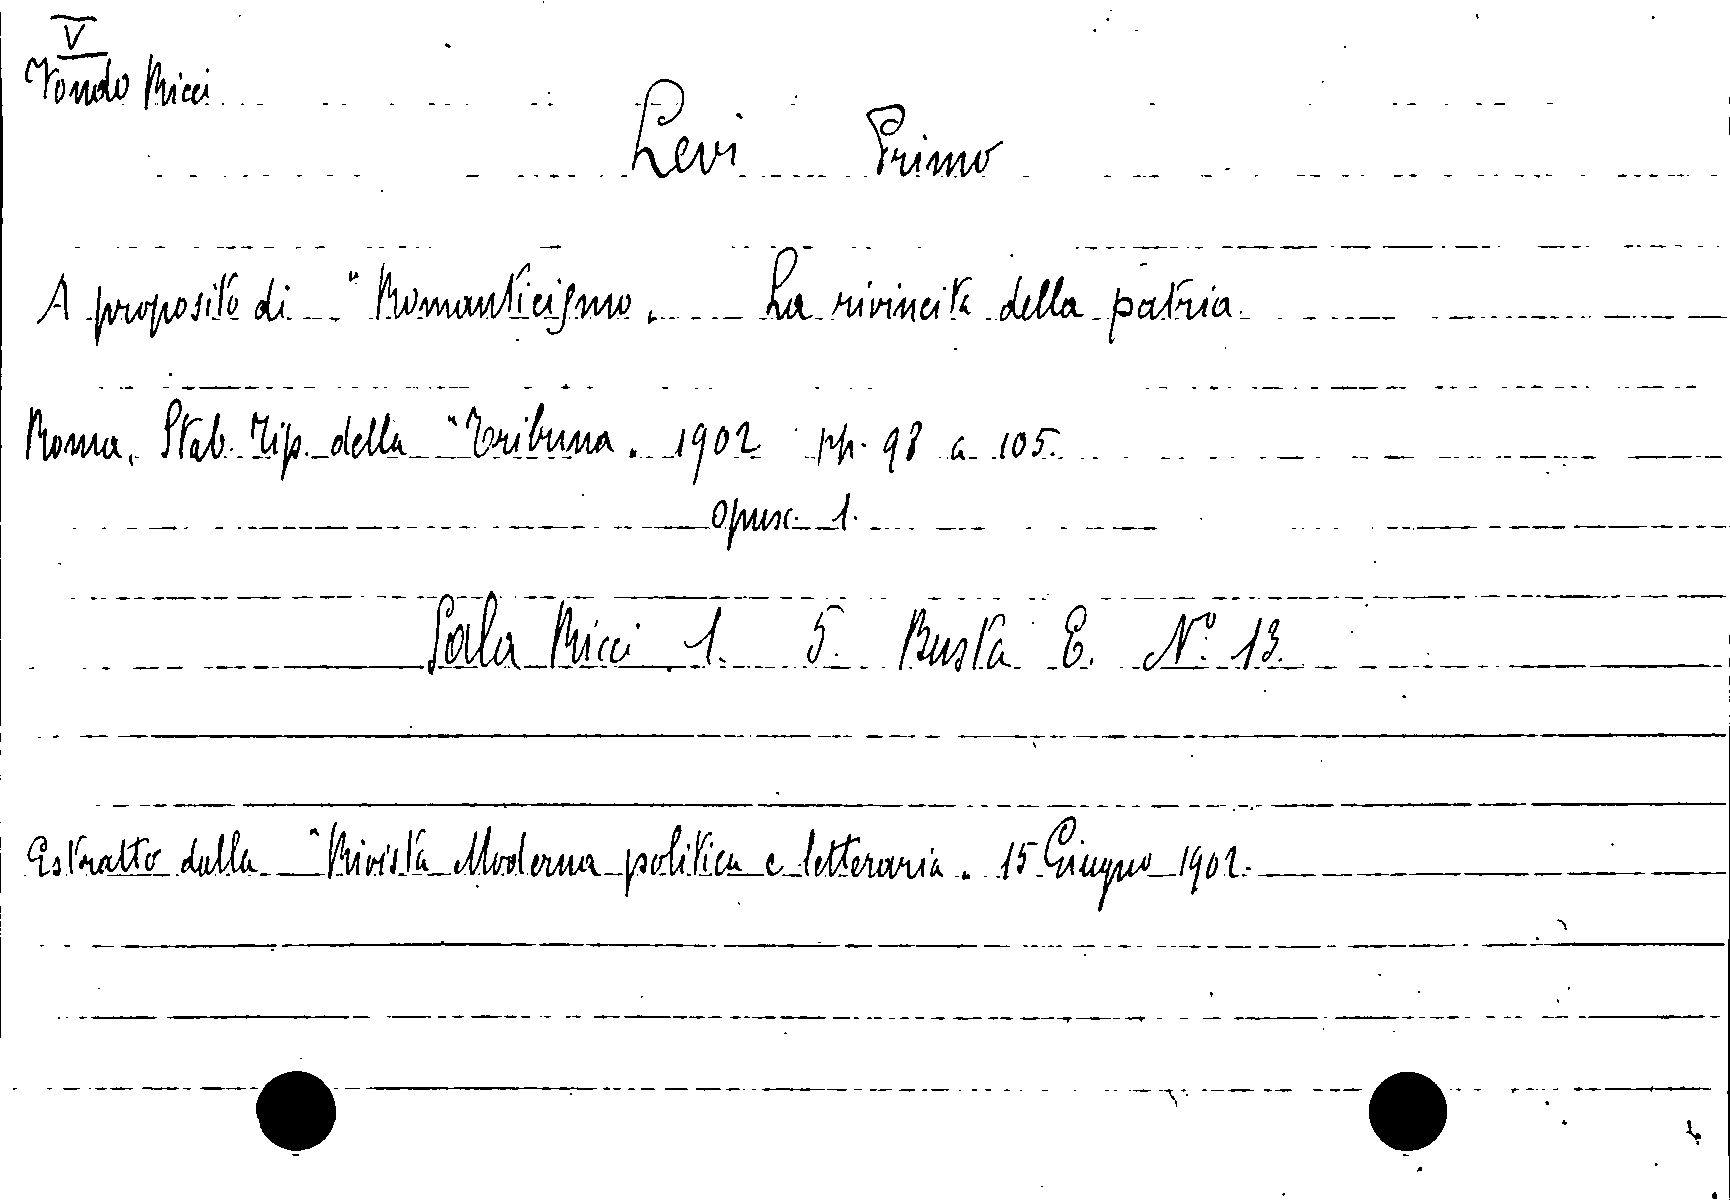 V
Fondo Ricci
Levi Primo
A proposito di "Romanticismo. La rivincita della patria.
Roma. Stab. Tip. della "Tribuna. 1902 pp. 98 a 105.
opusc. 1.
Sala Ricci 1. 5. Busta E. N° 13.
Estratto dalla "Rivista Moderna politica e letteraria. 15 Giugno 1902.